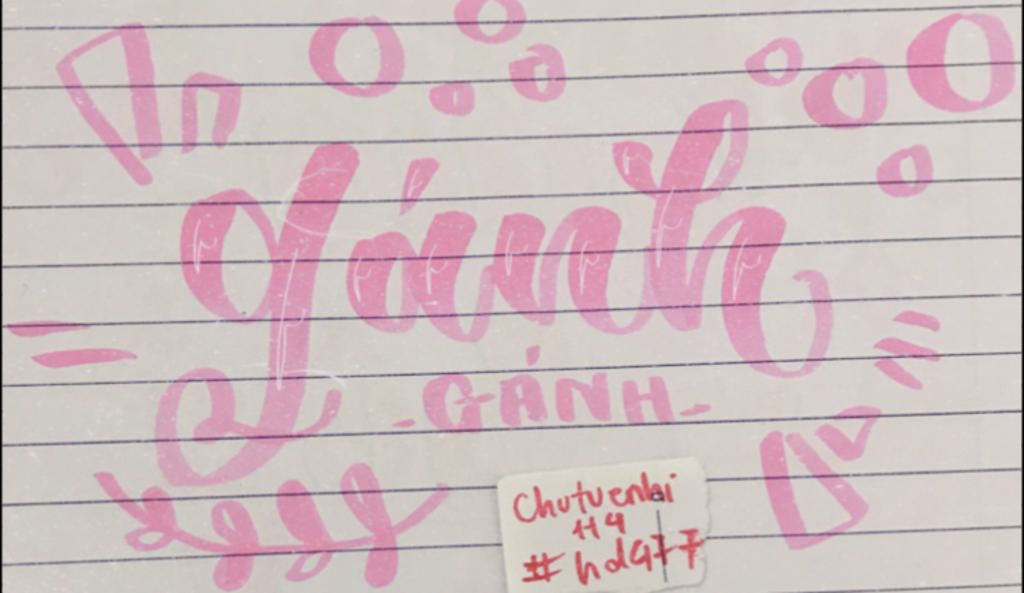 gánh
-GÁNH-
Chutuenhi
114
#hd977